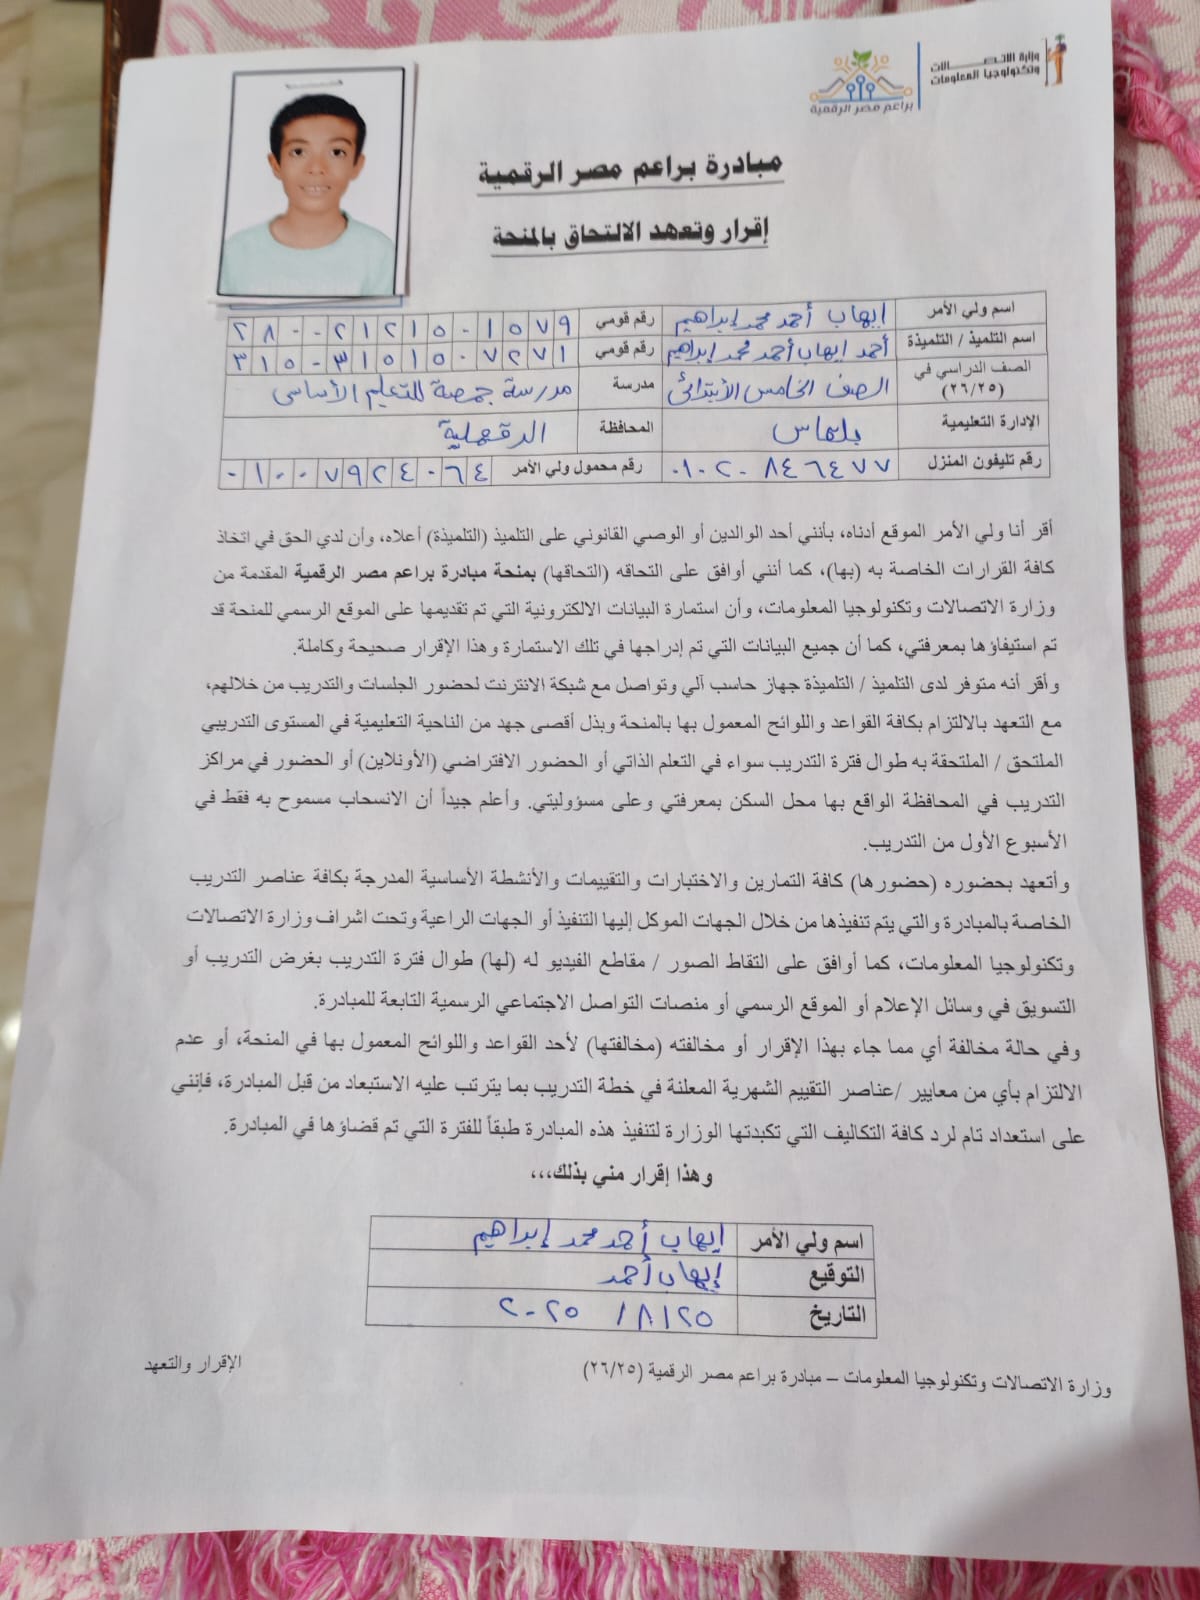 وزارة الاتصالات
وتكنولوجيا المعلومات
براعم مصر الرقمية
مبادرة براعم مصر الرقمية
إقرار وتعهد الالتحاق بالمنحة
اسم ولي الأمر إيهاب أحمد محمد إبراهيم رقم قومي ٢٨٠٠٢١٢١٥٠١٥٧٩
اسم التلميذ / التلميذة أحمد ايهاب أحمد محمد إبراهيم رقم قومي ٣١٥٠٣١٥١٥٠٧٢٧١
الصف الدراسي في (٢٦/٢٥) الصف الخامس الأبتدائى مدرسة مدرسة جمصة للتعليم الأساسى
الإدارة التعليمية بلقاس المحافظة الدقهلية
رقم تليفون المنزل ٠١٠٢٠٨٤٦٤٧٧ رقم محمول ولي الأمر ٠١٠٠٧٩٢٤٠٦٤
أقر أنا ولي الأمر الموقع أدناه، بأنني أحد الوالدين أو الوصي القانوني على التلميذ (التلميذة) أعلاه، وأن لدي الحق في اتخاذ
كافة القرارات الخاصة به (بها)، كما أنني أوافق على التحاقه (التحاقها) بمنحة مبادرة براعم مصر الرقمية المقدمة من
وزارة الاتصالات وتكنولوجيا المعلومات، وأن استمارة البيانات الالكترونية التي تم تقديمها على الموقع الرسمي للمنحة قد
تم استيفاؤها بمعرفتي، كما أن جميع البيانات التي تم إدراجها في تلك الاستمارة وهذا الإقرار صحيحة وكاملة.
وأقر أنه متوفر لدى التلميذ / التلميذة جهاز حاسب آلي وتواصل مع شبكة الانترنت لحضور الجلسات والتدريب من خلالهم،
مع التعهد بالالتزام بكافة القواعد واللوائح المعمول بها بالمنحة وبذل أقصى جهد من الناحية التعليمية في المستوى التدريبي
الملتحق / الملتحقة به طوال فترة التدريب سواء في التعلم الذاتي أو الحضور الافتراضي (الأونلاين) أو الحضور في مراكز
التدريب في المحافظة الواقع بها محل السكن بمعرفتي وعلى مسؤوليتي. وأعلم جيداً أن الانسحاب مسموح به فقط في
الأسبوع الأول من التدريب.
وأتعهد بحضوره (حضورها) كافة التمارين والاختبارات والتقييمات والأنشطة الأساسية المدرجة بكافة عناصر التدريب
الخاصة بالمبادرة والتي يتم تنفيذها من خلال الجهات الموكل إليها التنفيذ أو الجهات الراعية وتحت اشراف وزارة الاتصالات
وتكنولوجيا المعلومات، كما أوافق على التقاط الصور / مقاطع الفيديو له (لها) طوال فترة التدريب بغرض التدريب أو
التسويق في وسائل الإعلام أو الموقع الرسمي أو منصات التواصل الاجتماعي الرسمية التابعة للمبادرة.
وفي حالة مخالفة أي مما جاء بهذا الإقرار أو مخالفته (مخالفتها) لأحد القواعد واللوائح المعمول بها في المنحة، أو عدم
الالتزام بأي من معايير /عناصر التقييم الشهرية المعلنة في خطة التدريب بما يترتب عليه الاستبعاد من قبل المبادرة، فإنني
على استعداد تام لرد كافة التكاليف التي تكبدتها الوزارة لتنفيذ هذه المبادرة طبقاً للفترة التي تم قضاؤها في المبادرة.
وهذا إقرار مني بذلك،،،
اسم ولي الأمر إيهاب أحمد محمد إبراهيم
التوقيع إيهاب أحمد
التاريخ ٢٠٢٥ /٨/٢٥
وزارة الاتصالات وتكنولوجيا المعلومات – مبادرة براعم مصر الرقمية (٢٦/٢٥) الإقرار والتعهد